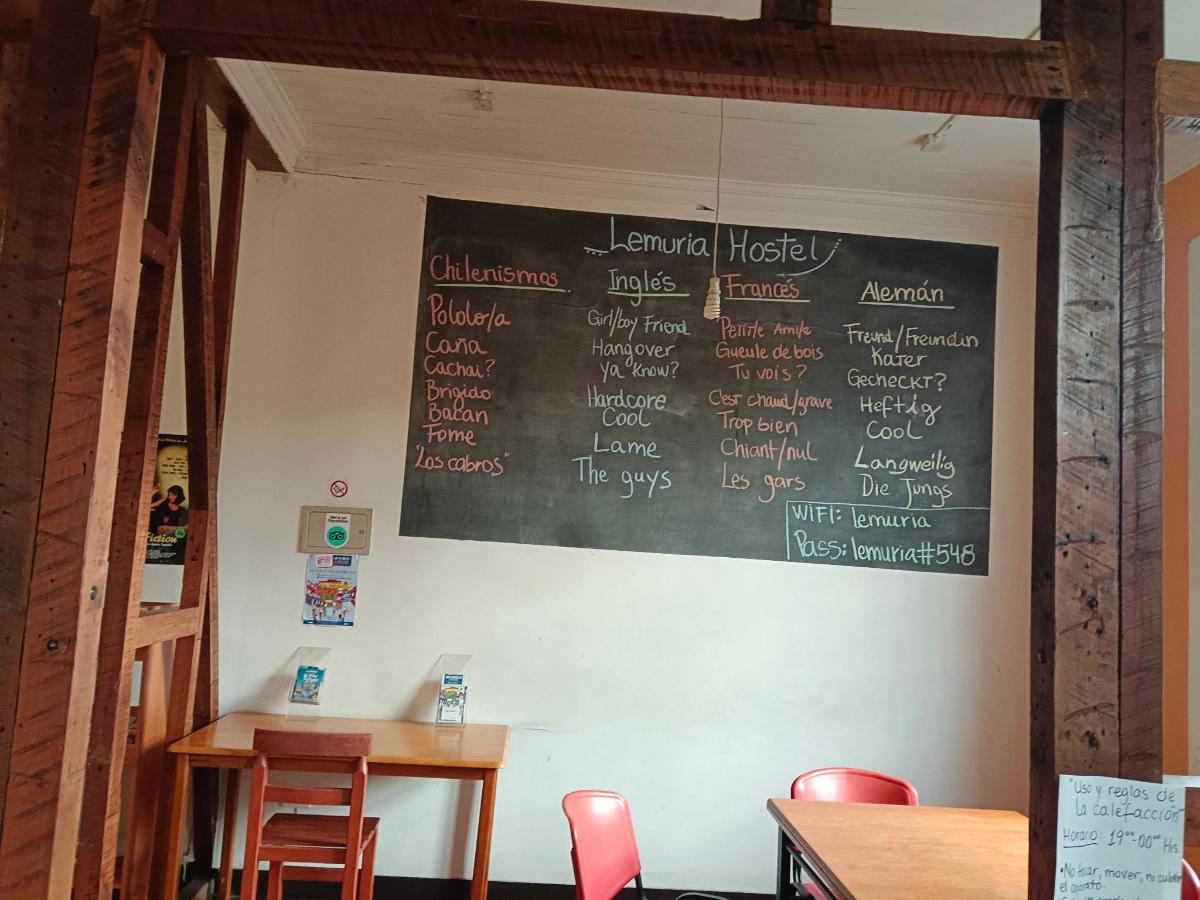 Lemuria Hostel
Chilenismos
Pololo/a
Caña
Cachai?
Brigido
Bacan
Fome
"Los cabros"
Inglés
Girl/boy Friend
Hangover
Ya know?
Hardcore
Cool
Lame
The guys
Francés
Petit/e Ami/e
Gueule de bois
Tu vois?
C'est chaud/grave
Trop bien
Chiant/nul
Les gars
Alemán
Freund/Freundin
Kater
Gecheckt?
Heftig
Cool
Langweilig
Die Jungs
WIFI: lemuria
Pass: lemuria#548
fiction
"Uso y reglas de
la calefacción"
Horario: 19⁰⁰-00⁰⁰ Hrs.
•No tocar, mover, ni
el aparato.